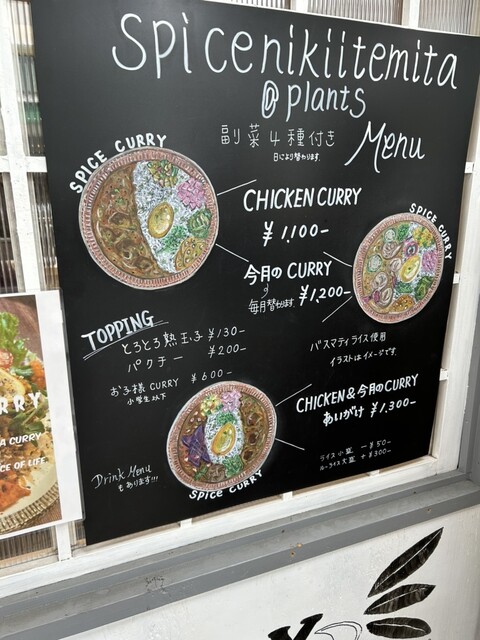 Spicenikiitemita
@ plants
副菜4種付き
日により替わります。
Menu
SPICE CURRY
CHICKEN CURRY
¥1,100-
SPICE CURRY
今月の CURRY
毎月替わります。
¥1,200-
TOPPING
とろとろ熟玉子 ¥130-
パクチー ¥200-
バスマティライス使用
イラストはイメージです。
お子様 CURRY ¥600-
小学生以下
CHICKEN&今月のCURRY
あいがけ ¥1,300-
Drink Menu
もあります!!!
SPICE CURRY
ライス小盛 -¥50-
ルーライス大盛 +¥300-
RRY
A CURRY
CE OF LIFE.